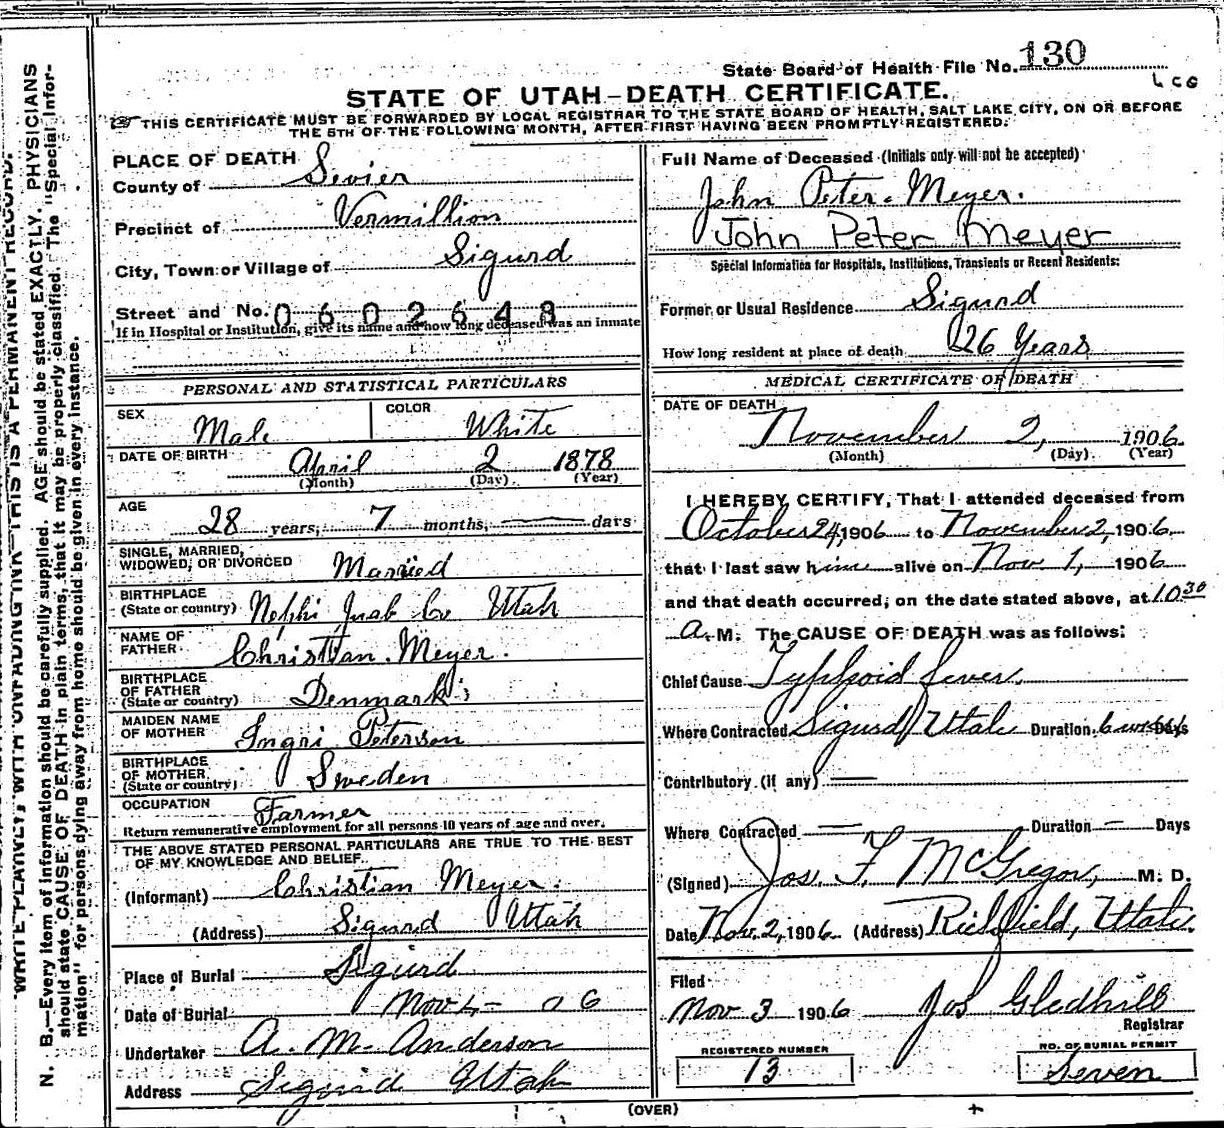 State Board of Health File No. 130
STATE OF UTAH-DEATH CERTIFICATE.
THIS CERTIFICATE MUST BE FORWARDED BY LOCAL REGISTRAR TO THE STATE BOARD OF HEALTH, SALT LAKE CITY, ON OR BEFORE
THE 5TH OF THE FOLLOWING MONTH, AFTER FIRST HAVING BEEN PROMPTLY REGISTERED.
PLACE OF DEATH
County of Sevier
Precinct of Vermillion
City, Town or Village of Sigurd
Street and No. 0602648
If in Hospital or Institution, give its name and how long deceased was an inmate
PERSONAL AND STATISTICAL PARTICULARS
SEX Male COLOR White
DATE OF BIRTH April 2 1878
(Month) (Day) (Year)
AGE 28 years, 7 months, days
SINGLE, MARRIED,
WIDOWED, OR DIVORCED Married
BIRTHPLACE
(State or country) Nephi Juab Co Utah
NAME OF
FATHER Christian Meyer.
BIRTHPLACE
OF FATHER
(State or country) Denmark
MAIDEN NAME
OF MOTHER Ingri Peterson
BIRTHPLACE
OF MOTHER
(State or country) Sweden
OCCUPATION Farmer
Return remunerative employment for all persons 10 years of age and over.
THE ABOVE STATED PERSONAL PARTICULARS ARE TRUE TO THE BEST
OF MY KNOWLEDGE AND BELIEF.
(Informant) Christian Meyer.
(Address) Sigurd Utah
Place of Burial Sigurd
Date of Burial Nov 4- 06
Undertaker A. M. Anderson
Address Sigurd Utah
Full Name of Deceased (Initials only will not be accepted)
John Peter Meyer.
John Peter Meyer
Special Information for Hospitals, Institutions, Transients or Recent Residents:
Former or Usual Residence Sigurd
How long resident at place of death 26 Years
MEDICAL CERTIFICATE OF DEATH
DATE OF DEATH
November 2, 1906
(Month) (Day) (Year)
I HEREBY CERTIFY, That I attended deceased from
October 24, 1906 to November 2, 1906
that I last saw him alive on Nov 1, 1906
and that death occurred, on the date stated above, at 10 30
A. M. The CAUSE OF DEATH was as follows:
Chief Cause Typhoid fever.
Where Contracted Sigurd Utah Duration 6 weeks Days
Contributory (if any) —
Where Contracted — Duration — Days
(Signed) Jos. F. McGregor, M. D.
Date Nov. 2, 1906 (Address) Richfield, Utah.
Filed
Nov 3 1906 Jos Gledhill
Registrar
REGISTERED NUMBER
13
NO. OF BURIAL PERMIT
Seven
(OVER)
WRITE PLAINLY, WITH UNFADING INK—THIS IS A PERMANENT RECORD.
N. B.—Every item of information should be carefully supplied. AGE should be stated EXACTLY. PHYSICIANS
should state CAUSE OF DEATH in plain terms, that it may be properly classified. The "Special Infor-
mation" for persons dying away from home should be given in every instance.